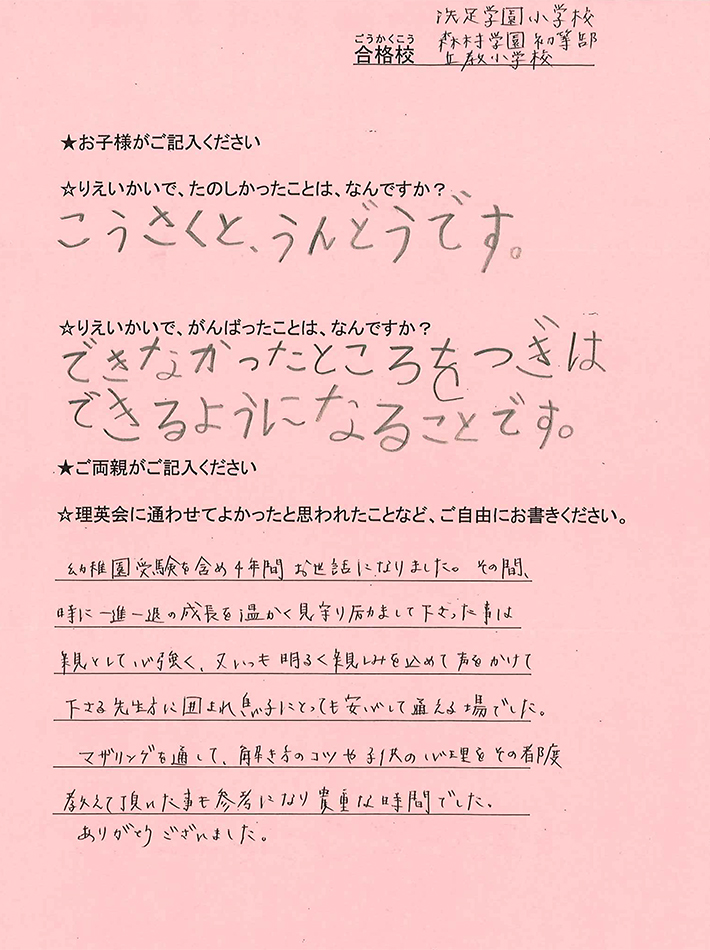 洗足学園小学校
ごうかくこう
合格校 森村学園初等部
立教小学校
★お子様がご記入ください
☆りえいかいで、たのしかったことは、なんですか？
こうさくと、うんどうです。
☆りえいかいで、がんばったことは、なんですか？
できなかったところをつぎは
できるようになることです。
★ご両親がご記入ください
☆理英会に通わせてよかったと思われたことなど、ご自由にお書きください。
幼稚園受験を含め4年間お世話になりました。その間、
時に一進一退の成長を温かく見守り励まして下さった事は
親として心強く、又いつも明るく親しみを込めて声をかけて
下さる先生方に囲まれ息子にとっても安心して通える場でした。
マザリングを通して、解き方のコツや子供の心理をその都度
教えて頂いた事も参考になり貴重な時間でした。
ありがとうございました。